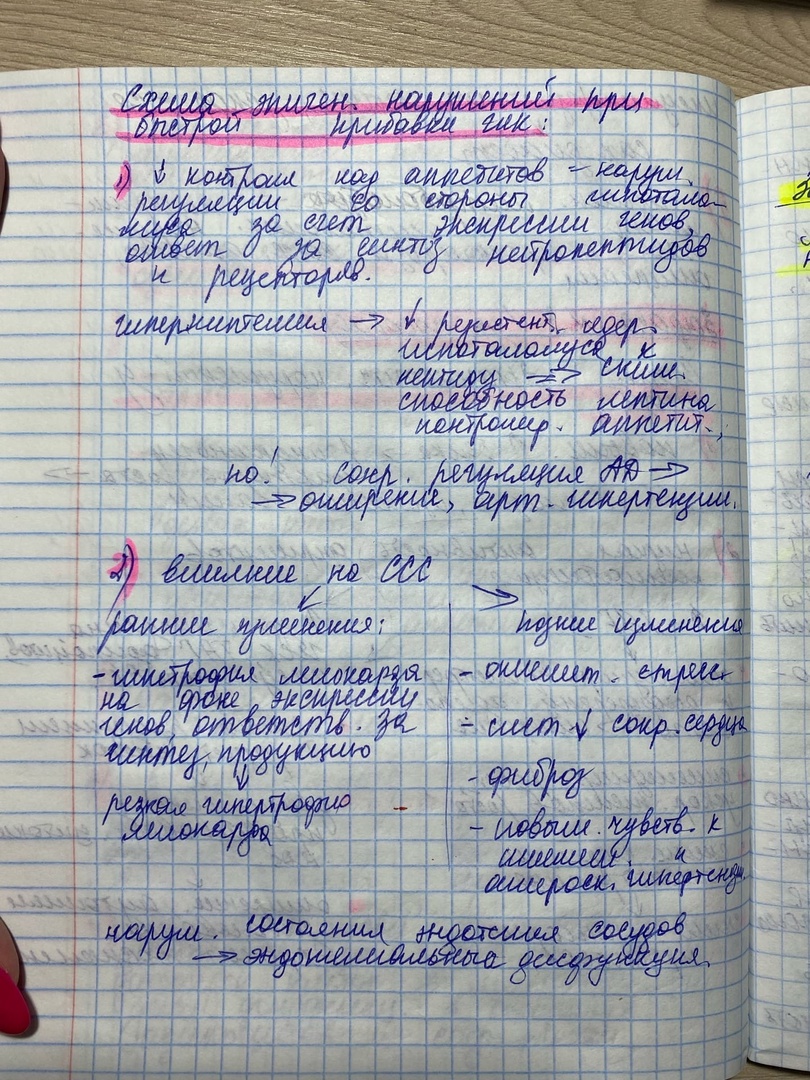 Схема эпиген. нарушений при
быстрой прибавки
1) ↓ контроля над аппетитов = наруш.
регуляции со стороны гипотала-
муса за счет экспрессии генов,
ответ за синтез нейропептидов
и рецепторов.
гиперлиптемия → ↓ резистент. ядер
гипоталамуса к
пептиду => сниж.
способность лептина
контролир. аппетит.,
но! сохр. регуляция АД →
→ ожирение, арт. гипертенции.
2) влияние на ССС
ранние
- гипетрофия миокарда
на фоне экспрессии
генов, ответств. за
синтез, продукцию
↓
резкая гипертрофия
миокарда
поздние изменения
- стресс
- сист ↓ сокр. сердца
- фиброз
- повыш. чувств. к
ишемии. и
атероск. гипертензии
наруш. состояния эндотелия сосудов
→ эндотелиальныа дисфункция.